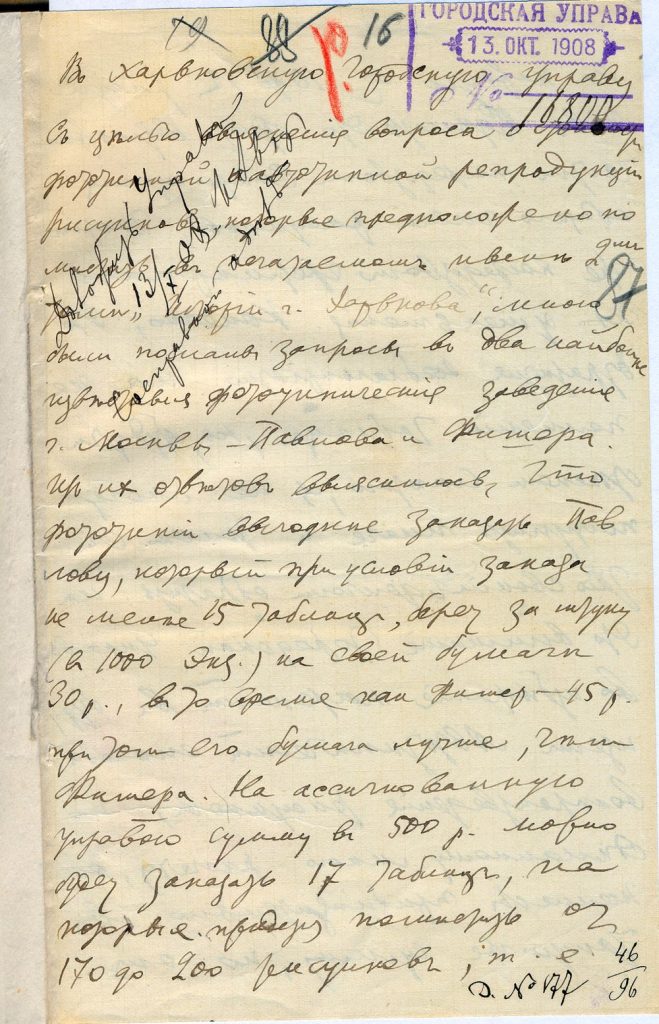 19 88 р. 16
ГОРОДСКАЯ УПРАВА
13. ОКТ. 1908
№ 16800
Въ Харьковскую Городскую Управу
Съ цѣлью выясненія вопроса о
фототипной и автотипной репродукціи
рисунковъ, которые предположено по-
мѣстить въ печатаемомъ мною 2мъ
томѣ „Исторіи г. Харькова“, мною
были посланы запросы въ два наиболѣе
извѣстныя фототипическія заведенія
г. Москвы – Павлова и Фишера.
Изъ ихъ отвѣтовъ выяснилось, что
фототипіи выгоднѣе заказать Пав-
лову, который при условіи заказа
не менѣе 15 таблицъ, беретъ за штуку
(въ 1000 экз.) на своей бумагѣ
30 р., въ то время какъ Фишер – 45 р.
при томъ его бумага лучше, чѣмъ
Фишера. На ассигнованную
управою сумму въ 500 р. можно
будетъ заказать 17 таблицъ, на
которые придется помѣстить отъ
170 до 200 рисунковъ, т. е
Доложить Управѣ
13/X 08
97
Д. № 177
46/96